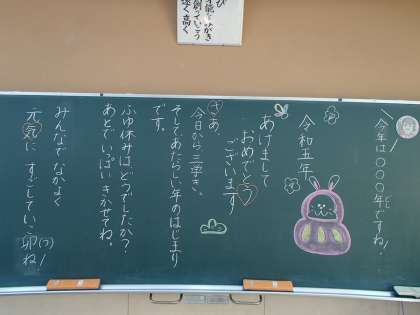 今年は〇〇〇年ですね!
令和五年、
あけまして
おめでとう
ございます
さあ、
今日から三学き。
そしてあたらしい年のはじまり
です。
ふゆ休みはどうでしたか?
あとでいっぱいきかせてね。
みんなでなかよく
元気に すごしていこ卯(う)ね!